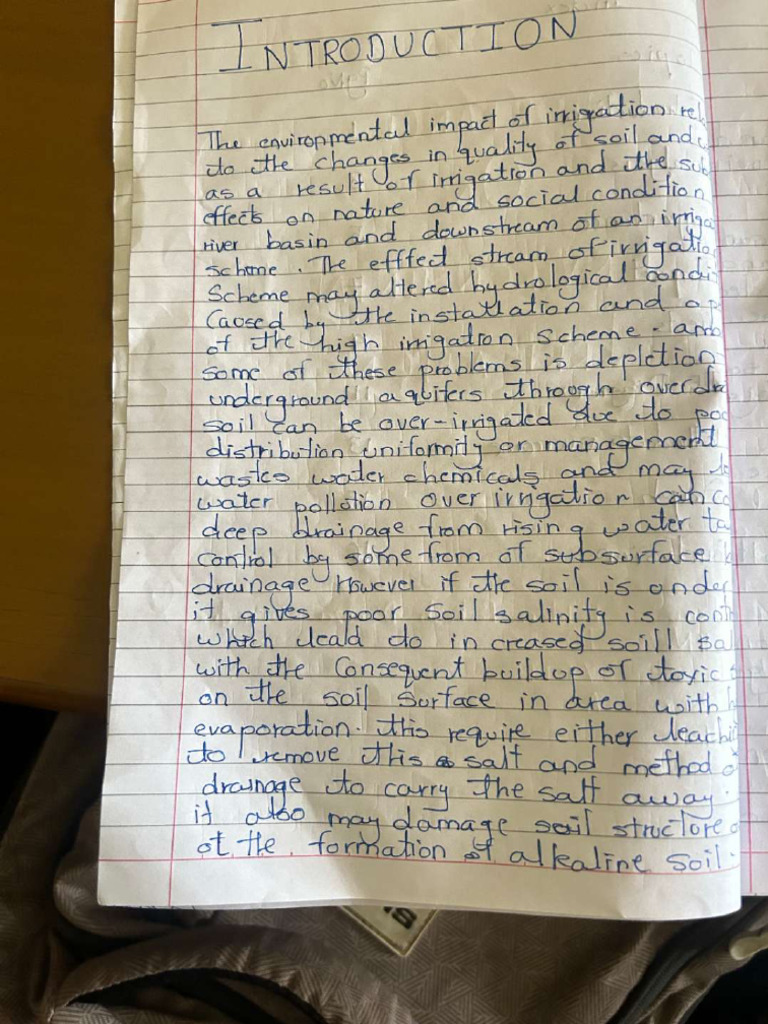 INTRODUCTION
The environmental impact of irrigation rel
to the changes in quality of soil and
as a result of irrigation and the sub
effects on nature and social condition
river basin and downstream of an irriga
scheme. The efffect stream of irrigatio
Scheme may altered hydrological condi
Caosed by the installation and op
of the high irrigation scheme. and
some of these problems is depletion
underground aquifers through overdra
soil can be over-irrigated due to poo
distribution uniformity or management
wastes water chemicals and may
water pollotion over irrigation can c
deep drainage from rising water ta
control by some from of subsurface
drainage However if the soil is onder
it gives poor soil salinity is cont
which lead to increased soill sa
with the Consequent buildup of toxic
on the soil surface in area with h
evaporation. this require either leachi
to remove this salt and method o
drainage to carry the salt away.
it also may damage soil structore
ot the formation of alkaline soil.